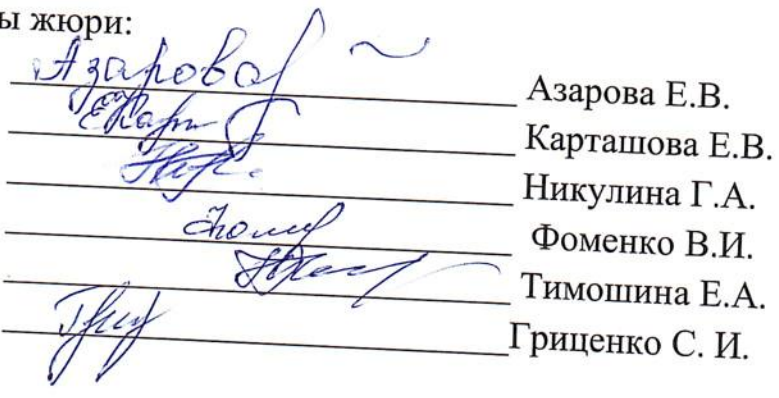 ы жюри:
Азарова Азарова Е.В.
Карташова Е.В.
Никулина Г.А.
Фоменко В.И.
Тимошина Е.А.
Гриценко С. И.